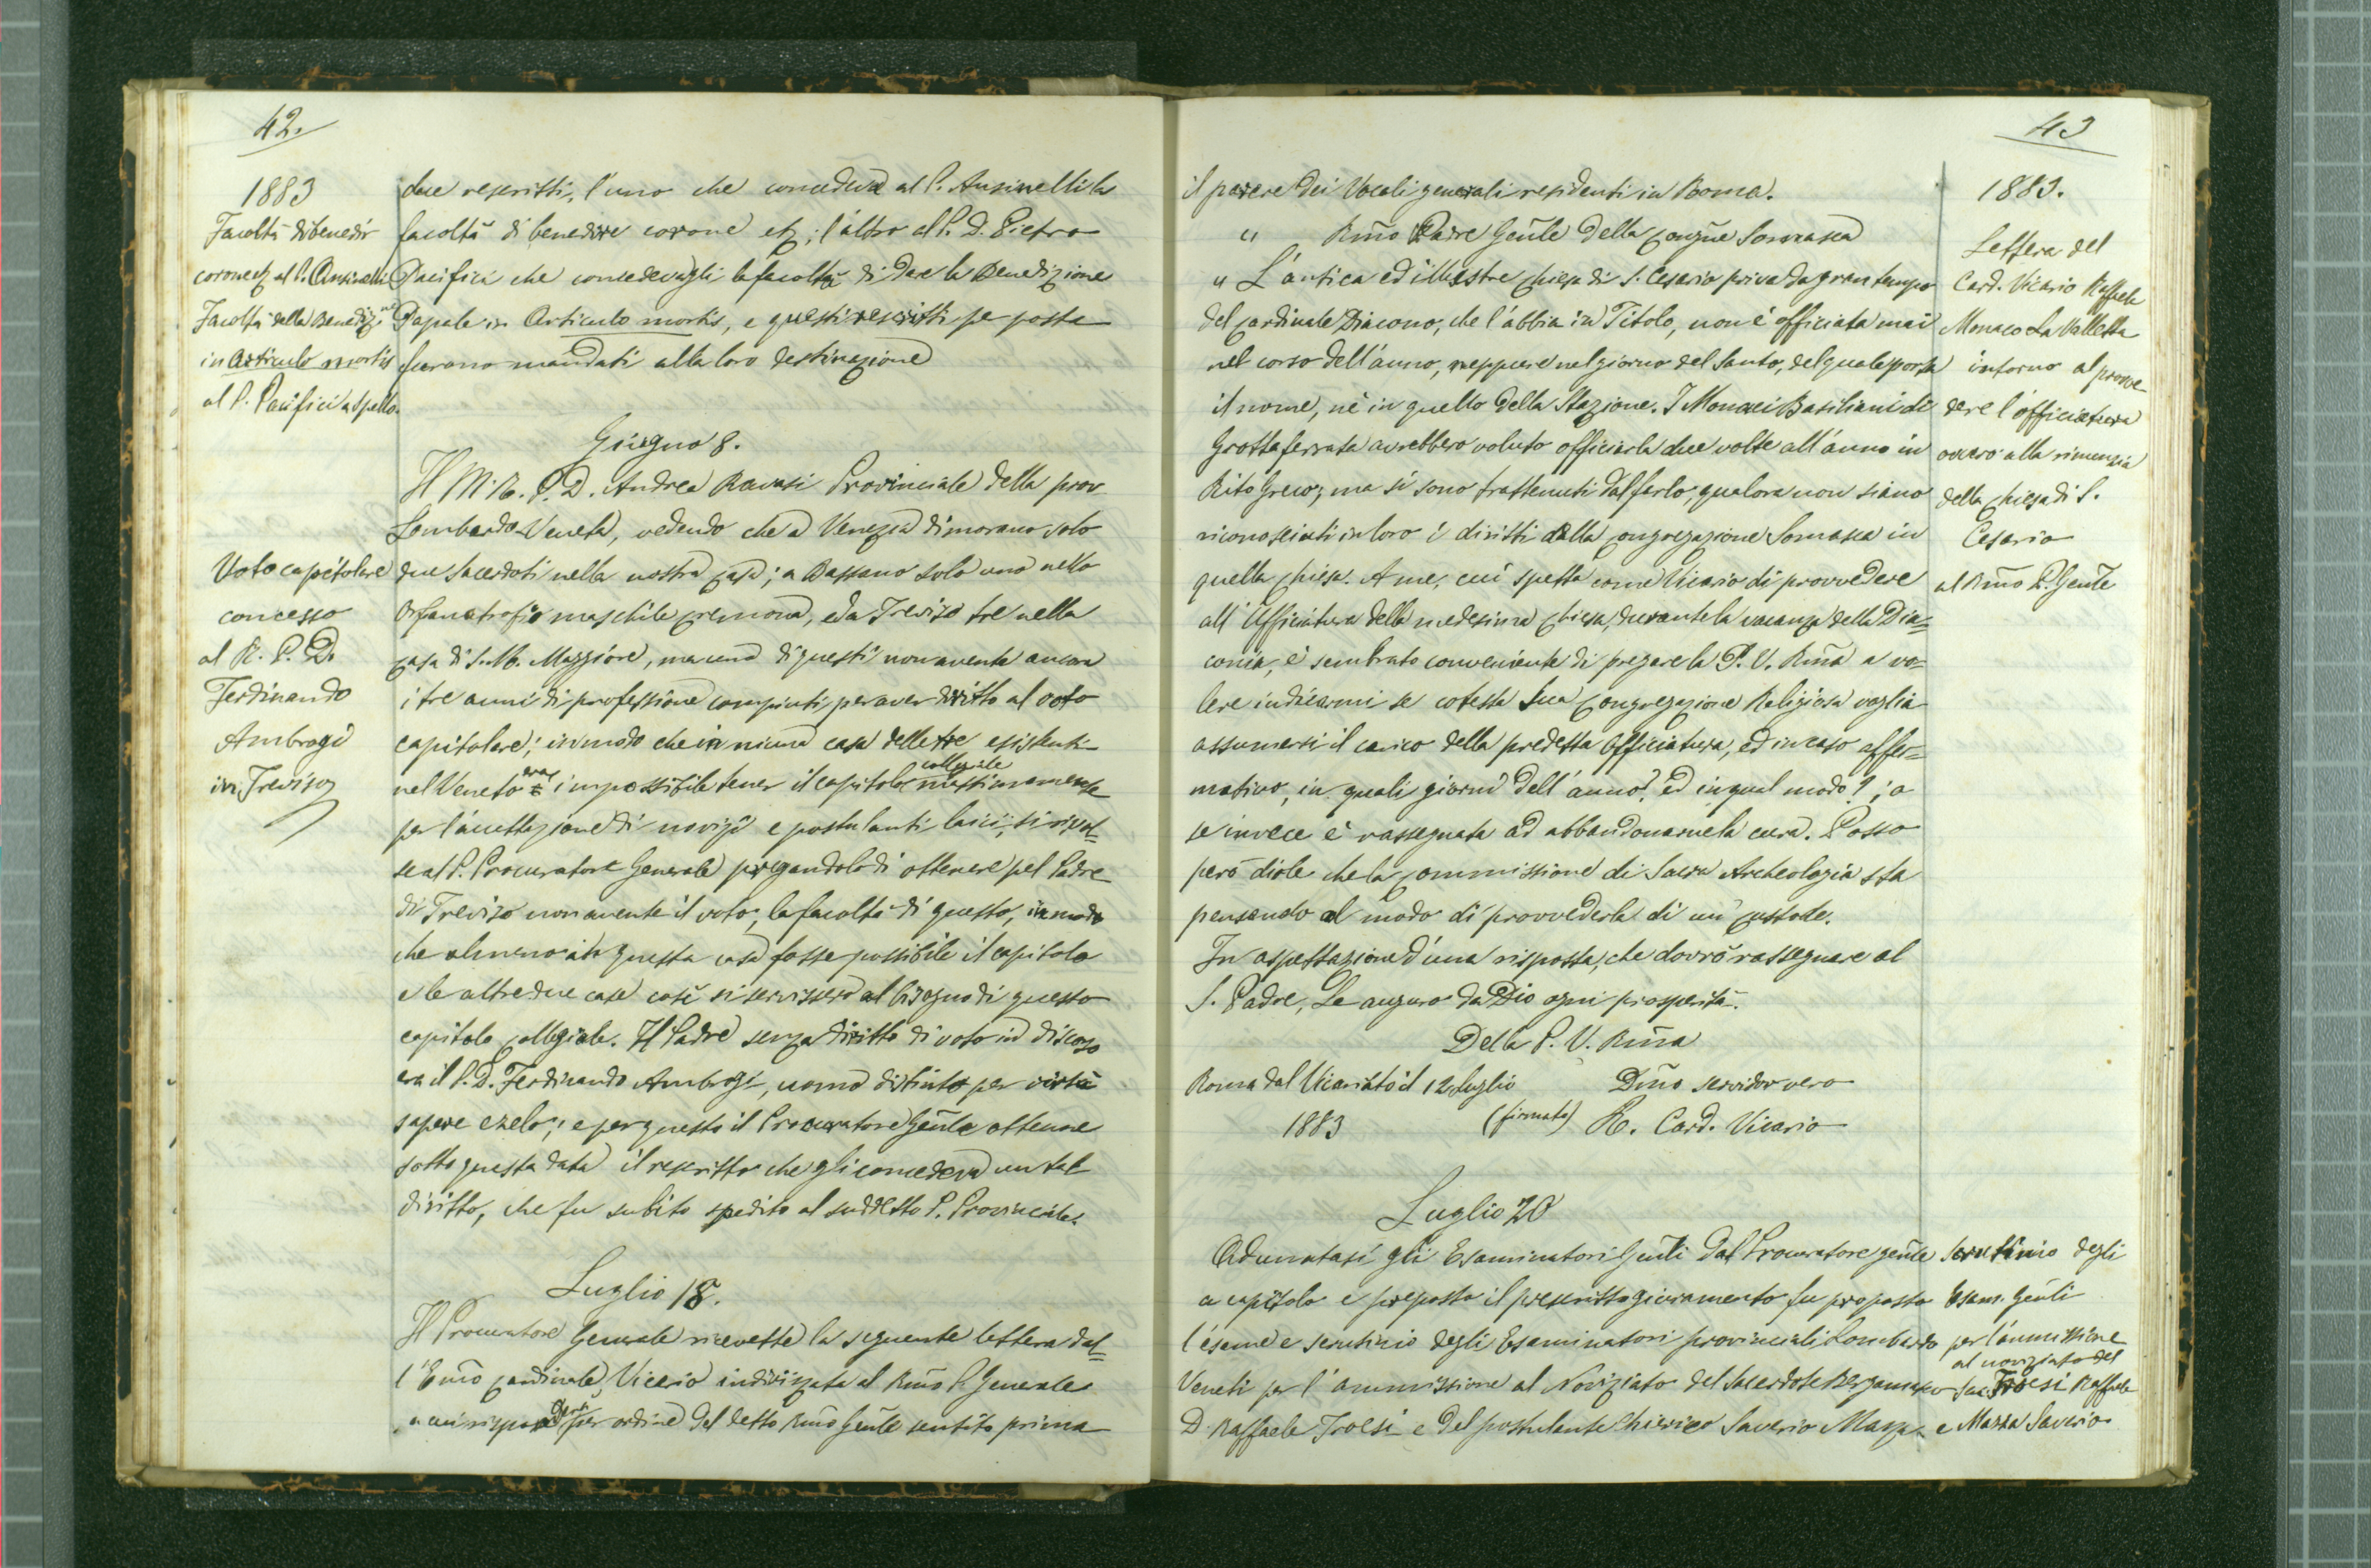 42.
1883
Facoltà di benedir
corone etz al P. Ansinelli
Facoltà della Benediz.ne
in Articulo mortis
al P. Pacifici a Spello.
due rescritti, l'uno che concedeva al P. Ansinelli la
facoltà di benedire corone etz; l'altro al P. D. Pietro
Pacifici che concedevagli la facoltà di dare la Benedizione
Papale in Articulo mortis, e questi rescritti per posta
furono mandati alla loro destinazione
Giugno 8.
Il M. R. P. D. Andrea Ravasi Provinciale della prov
Lombardo-Veneta, vedendo che a Venezia dimorano solo
Voto capitolare
concesso
al R. P. D.
Ferdinando
Ambrogi
in Treviso
due Sacerdoti nella nostra casa; a Bassano solo uno nello
Orfanotrofio maschile Cremona, ed a Treviso tre nella
casa di S. M. Maggiore, ma uno di questi non avente ancora
i tre anni di professione compiuti, per aver diritto al voto
capitolare; in modo che in niuna casa delle tre esistenti
nel Veneto era impossibile tener il capitolo collegiale massimamente
per l'accettazione di novizî e postulanti laici, si rivol=
se al P. Procuratore Generale pregandolo di ottenere pel Padre
di Treviso non avente il voto, la facoltà di questo, in modo
che almeno in questa casa fosse possibile il capitolo
e le altre due case così si servissero al bisogno di questo
capitolo collegiale. Il Padre senza diritto di voto in discorso
era il P. D. Ferdinando Ambrogi, uomo distinto per virtù
sapere e zelo; e per questo il Procuratore Gen̄le ottenne
sotto questa data il rescritto che gli concedeva un tal
diritto, che fu subito spedito al suddetto P. Provinciale.
Luglio 18.
Il Procuratore Generale ricevette la seguente lettera dal=
l'Em̄o Cardinale Vicario indirizzata al Rm̄o P. Generale
a cui rispose per ordine del detto Rm̄o Gen̄le sentito prima
43
il parere dei Vocali generali residenti in Roma.
" Rm̄o Padre Gen̄le della Congñe Somasca
" L'antica ed illustre Chiesa di S. Cesario priva da gran tempo
del Cardinale Diacono, che l'abbia in Titolo, non è officiata mai
nel corso dell'anno, neppure nel giorno del Santo, del quale porta
il nome, nè in quello della Stazione. I Monaci Basiliani di
Grottaferrata avrebbero voluto officiarla due volte all'anno in
Rito Greco; ma si sono trattenuti dal farlo, qualora non siano
riconosciuti in loro i diritti della Congregazione Somasca in
quella Chiesa. A me, cui spetta come Vicario di provvedere
all'Ufficiatura della medesima Chiesa, durante la vacanza della Dia=
conia, è sembrato conveniente di pregare la P. V. Rm̄a a vo=
lere indicarmi se cotesta Sua Congregazione Religiosa voglia
assumersi il carico della predetta Officiatura, ed in caso affer=
mativo, in quali giorni dell'anno? ed in qual modo?; o
se invece è rassegnata ad abbandonarne la cura. Posso
però dirle che la Commissione di Sacra Archeologia sta
pensando al modo di provvederla di un Custode.
In aspettazione d'una risposta, che dovrò rassegnare al
S. Padre, Le auguro da Dio ogni prosperità.
Della P. V. Rm̄a
Roma dal Vicariato il 12 Luglio Dm̄o servidor vero
1883 (firmato) R. Card. Vicario
1883.
Lettera del
Card. Vicario Raffaele
Monaco La Valletta
intorno al provve
dere l'officiatura
ovvero alla rinunzia
della Chiesa di S.
Cesario
al Rm̄o P. Gen̄le
Luglio 20
Adunatasi gli Esaminatori Gen̄li dal Procuratore gen̄le
a capitolo e preposto il prescritto giuramento fu proposto
l'esame e scrutinio degli Esaminatori provinciali Lombardo
Veneti per l'ammissione al Noviziato del Sacerdote Bergamasco
D. Raffaele Troesi e del postulante Chierico Saverio Mazza
Scrutinio degli
Esam. Gen̄li
per l'ammissione
al noviziato del
Sac. Troesi Raffaele
e Mazza Saverio